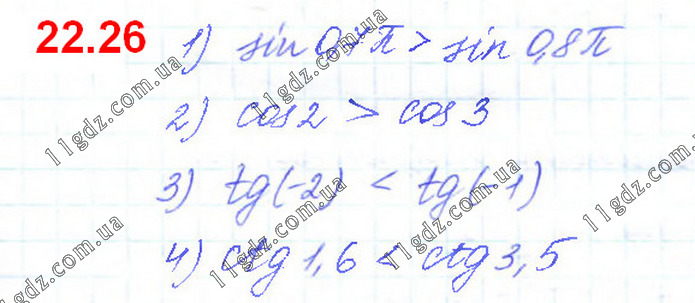 22.26
1) sin 0,7π > sin 0,8π
2) cos 2 > cos 3
3) tg(-2) < tg(-1)
4) ctg 1,6 < ctg 3,5
11gdz.com.ua
11gdz.com.ua
11gdz.com.ua
11gdz.com.ua
11gdz.com.ua
11gdz.com.ua
11gdz.com.ua